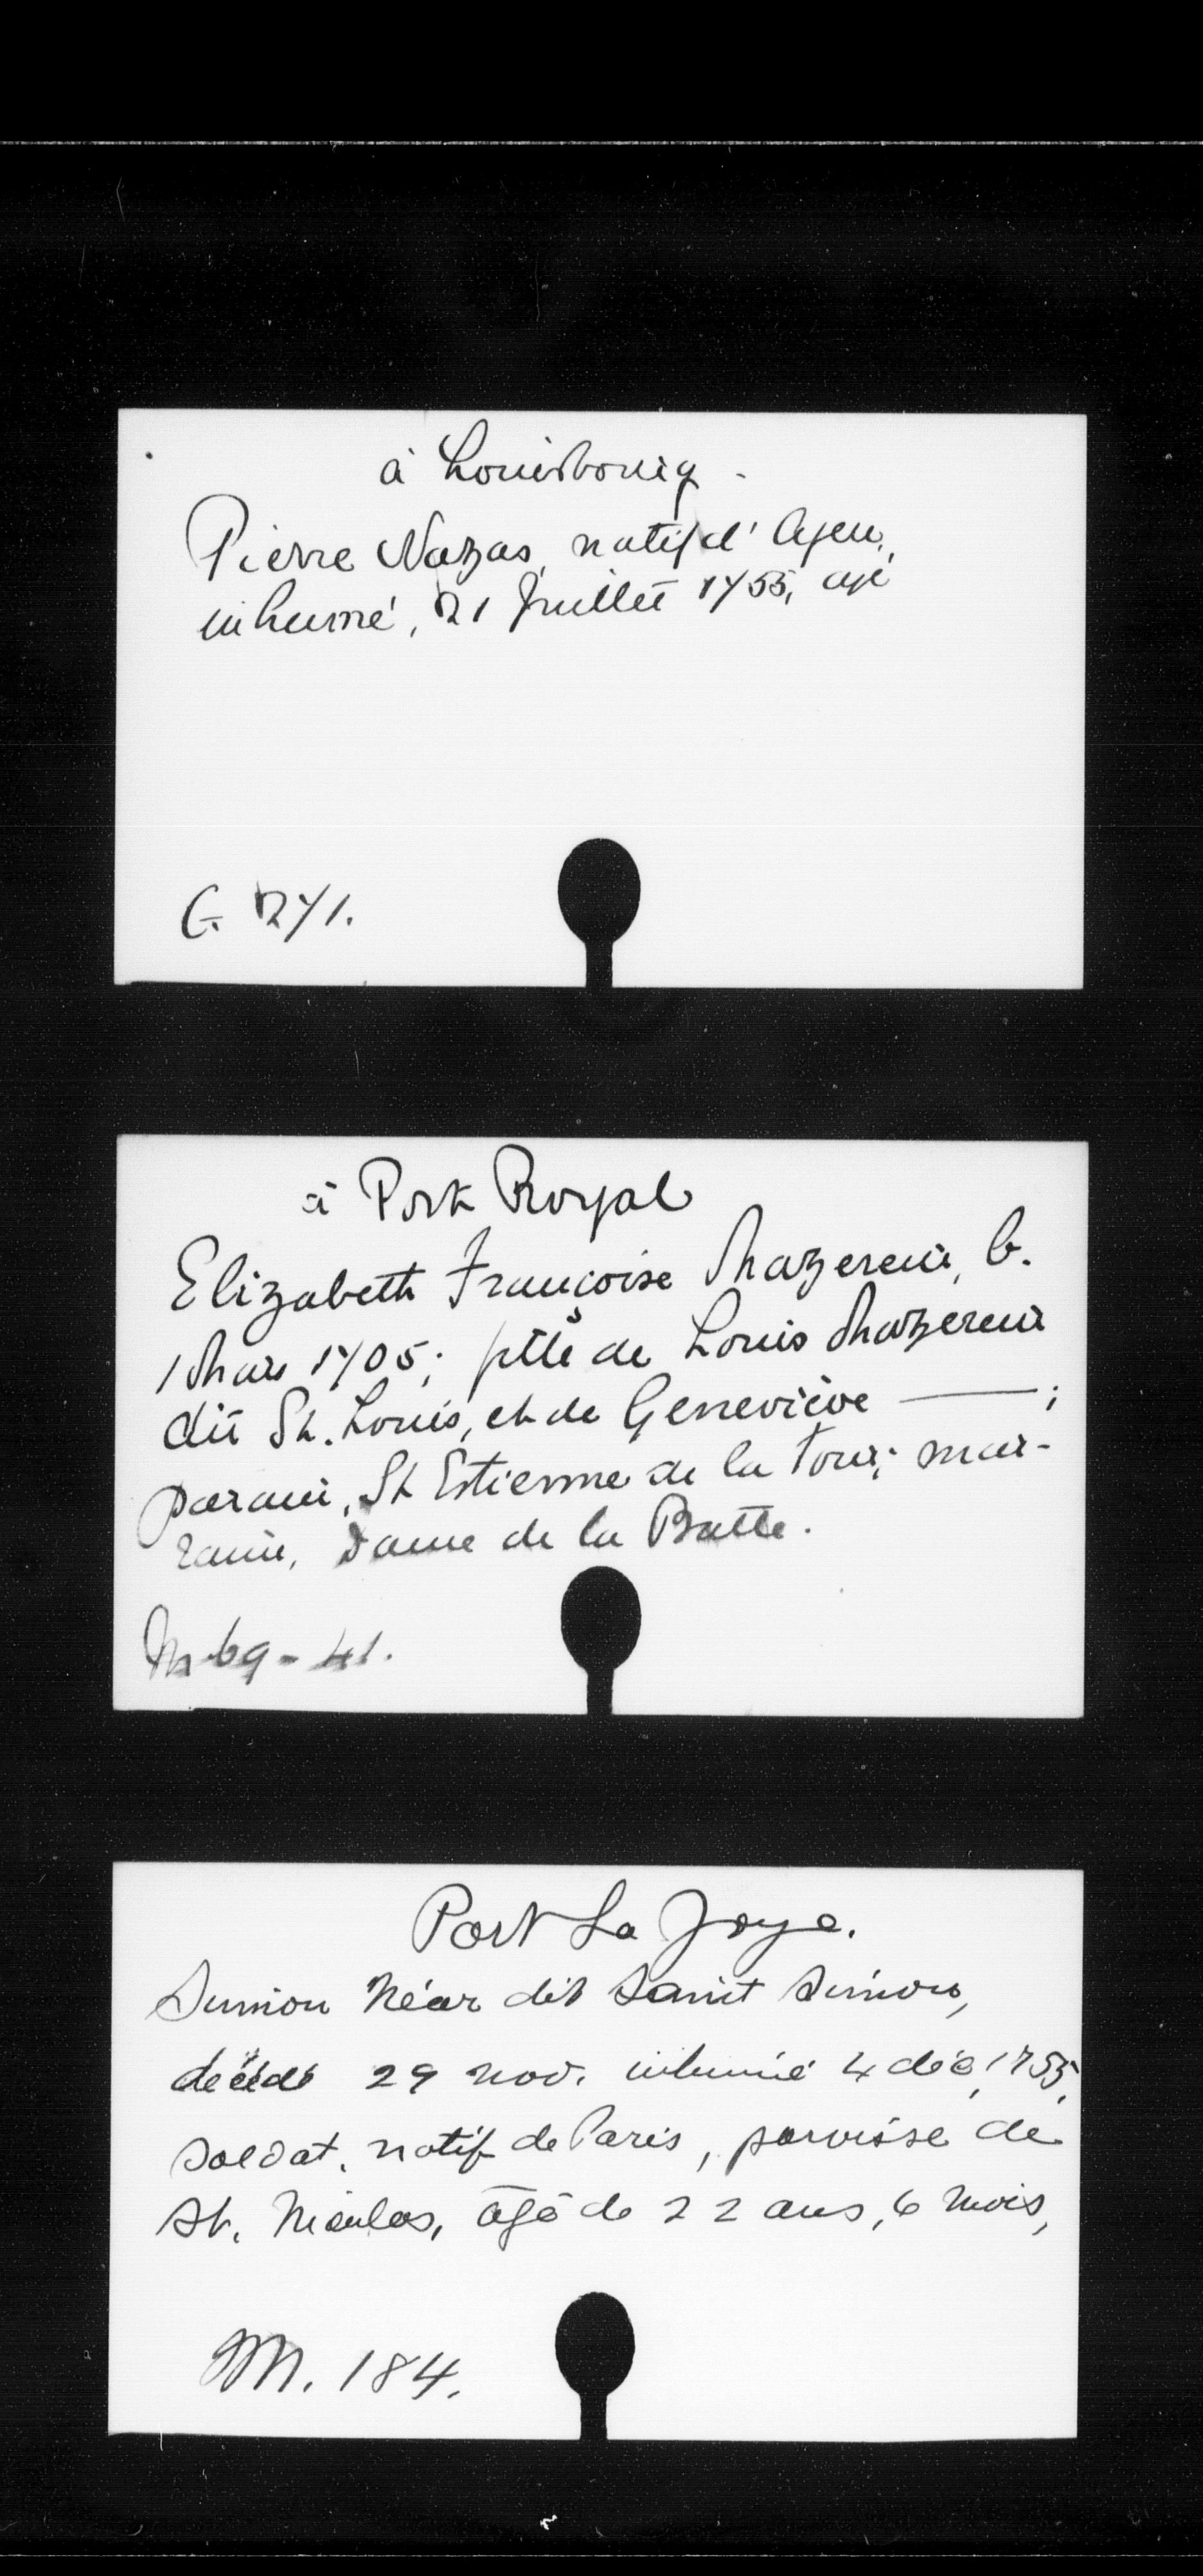 à Louisbourg -
Pierre Nazas, natif d'Agen,
inhumé, 21 Juillet 1755, agé
G. 271.
à Port Royal
Elizabeth Françoise Mazerein, b.
1 Mars 1705; fille de Louis Mazerein
dit St. Louis, et de Geneviève ——;
parain, St Estienne de la Tour; mar-
raine, Dame de la Batte.
M 69-41.
Port La Joye.
Simon Néar dit Saint Simon,
décédé 29 nov. inhumé 4 déc 1755,
soldat, natif de Paris, paroisse de
St. Nicolas, âgé de 22 ans, 6 mois,
M. 184.